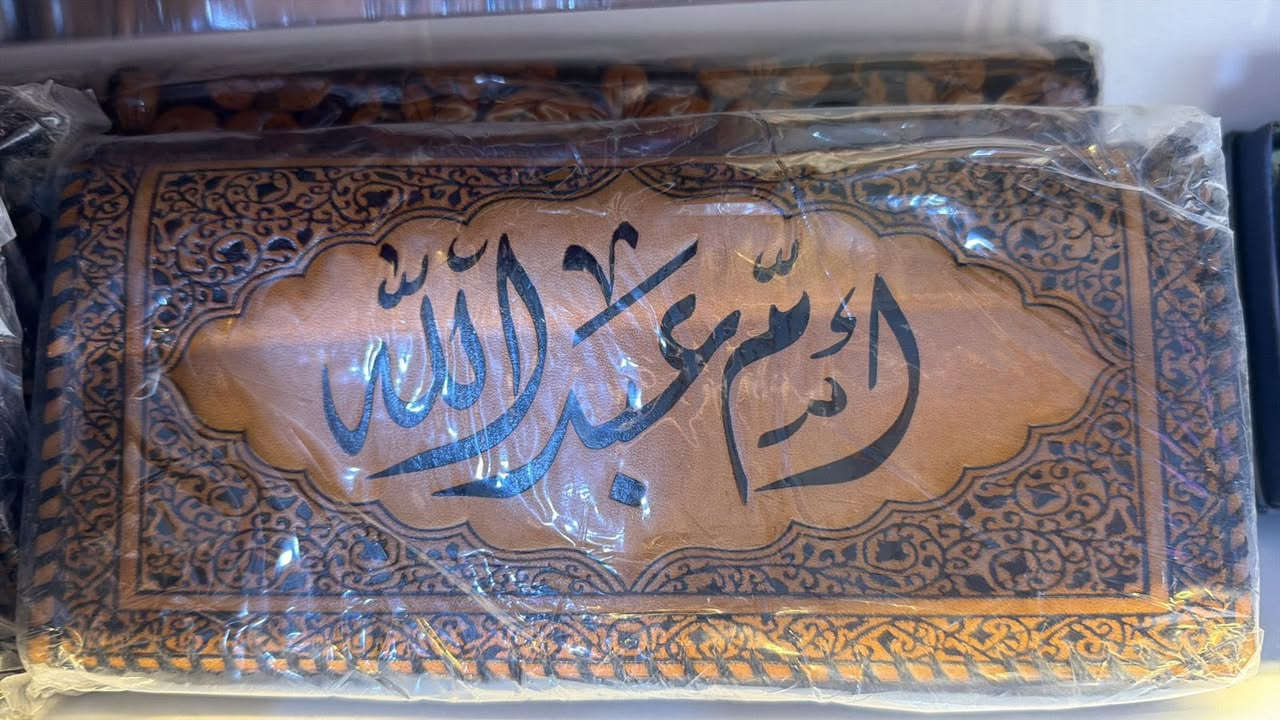 أمّ عبد اللّٰه